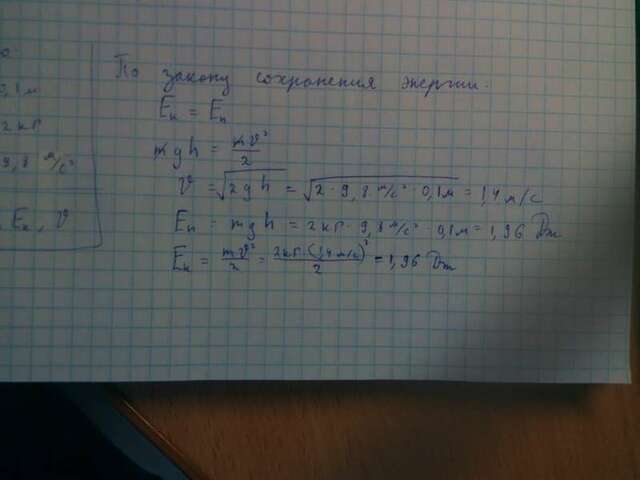 о.
0,1 м
2 кг
9,8 м/с²
Eк, v
По закону сохранения энергии.
Eк = Eп
mgh = mv²/2
v = √2gh = √2 · 9,8 м/с² · 0,1м = 1,4 м/с
Eп = mgh = 2кг · 9,8 м/с² · 0,1м = 1,96 Дж
Eк = mv²/2 = 2кг·(1,4 м/с)²/2 = 1,96 Дж